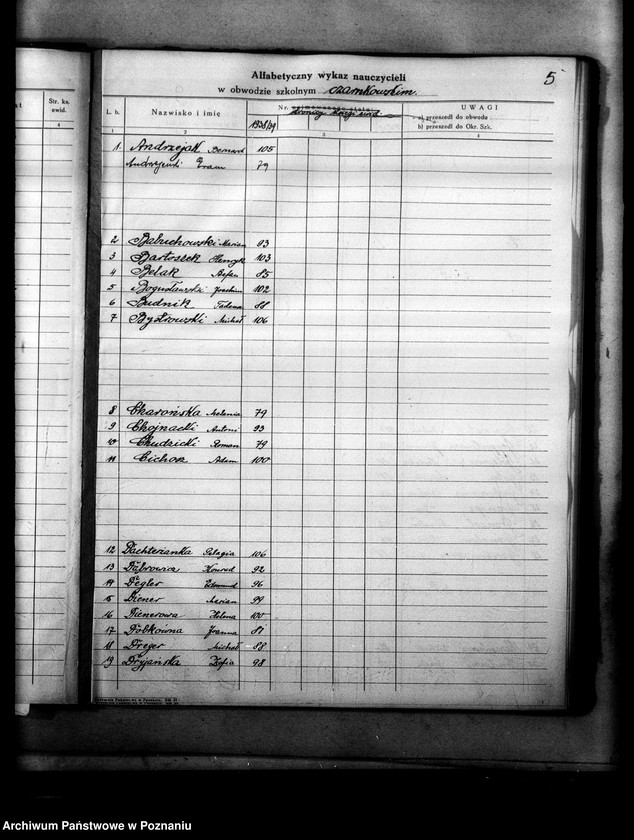 5
Alfabetyczny wykaz nauczycieli
w obwodzie szkolnym czarnkowskim.
Str. ks. ewid.
4
L. b. Nazwisko i imię Nr. 1938/39 UWAGI
a) przeszedł do obwodu
b) przeszedł do Okr. Szk.
1 2 3 4
1. Andrzejak Bernard 105
79
2 Babuchowski Marian 93
3 Bartoszek Henryk 103
4 Belak Stefan 85
5 Bogusławski Joachim 102
6 Budnik 88
7 Bystrowski Michał 106
8 Charońska Melania 79
9 Chojnacki Antoni 93
10 Chudzicki Roman 79
11 Cichosz Adam 100
12 Dachterianka Pelagia 106
13 Dąbrowicz Konrad 92
14 Degler Edmund 96
15 Diener Marian 99
16 Dienerowa Helena 100
17 Dobkówna Joanna 81
18 Dreger Michał 88
19 Dryjańska Zofia 98
Archiwum Państwowe w Poznaniu